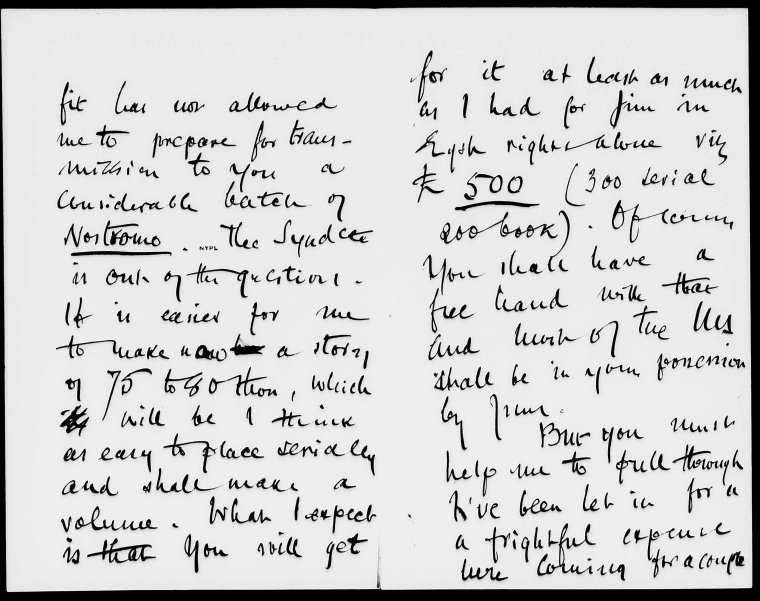 fit has not allowed
me to prepare for trans-
mission to you a
considerable batch of
Nostromo. NYPL The Syndcte
is out of the question.
It is easier for me
to make now a story
of 75 to 80 thou, which
will be I think
as easy to place serially
and shall make a
volume. What I expect
is that you will get
for it at least as much
as I had for Jim in
Engsh rights alone viz
£ 500 (300 serial
200 book). Of course
you shall have a
free hand with that
and most of the MS
shall be in your possession
by June.
But you must
help me to pull through
I've been let in for a
a frightful expense
here coming for a couple